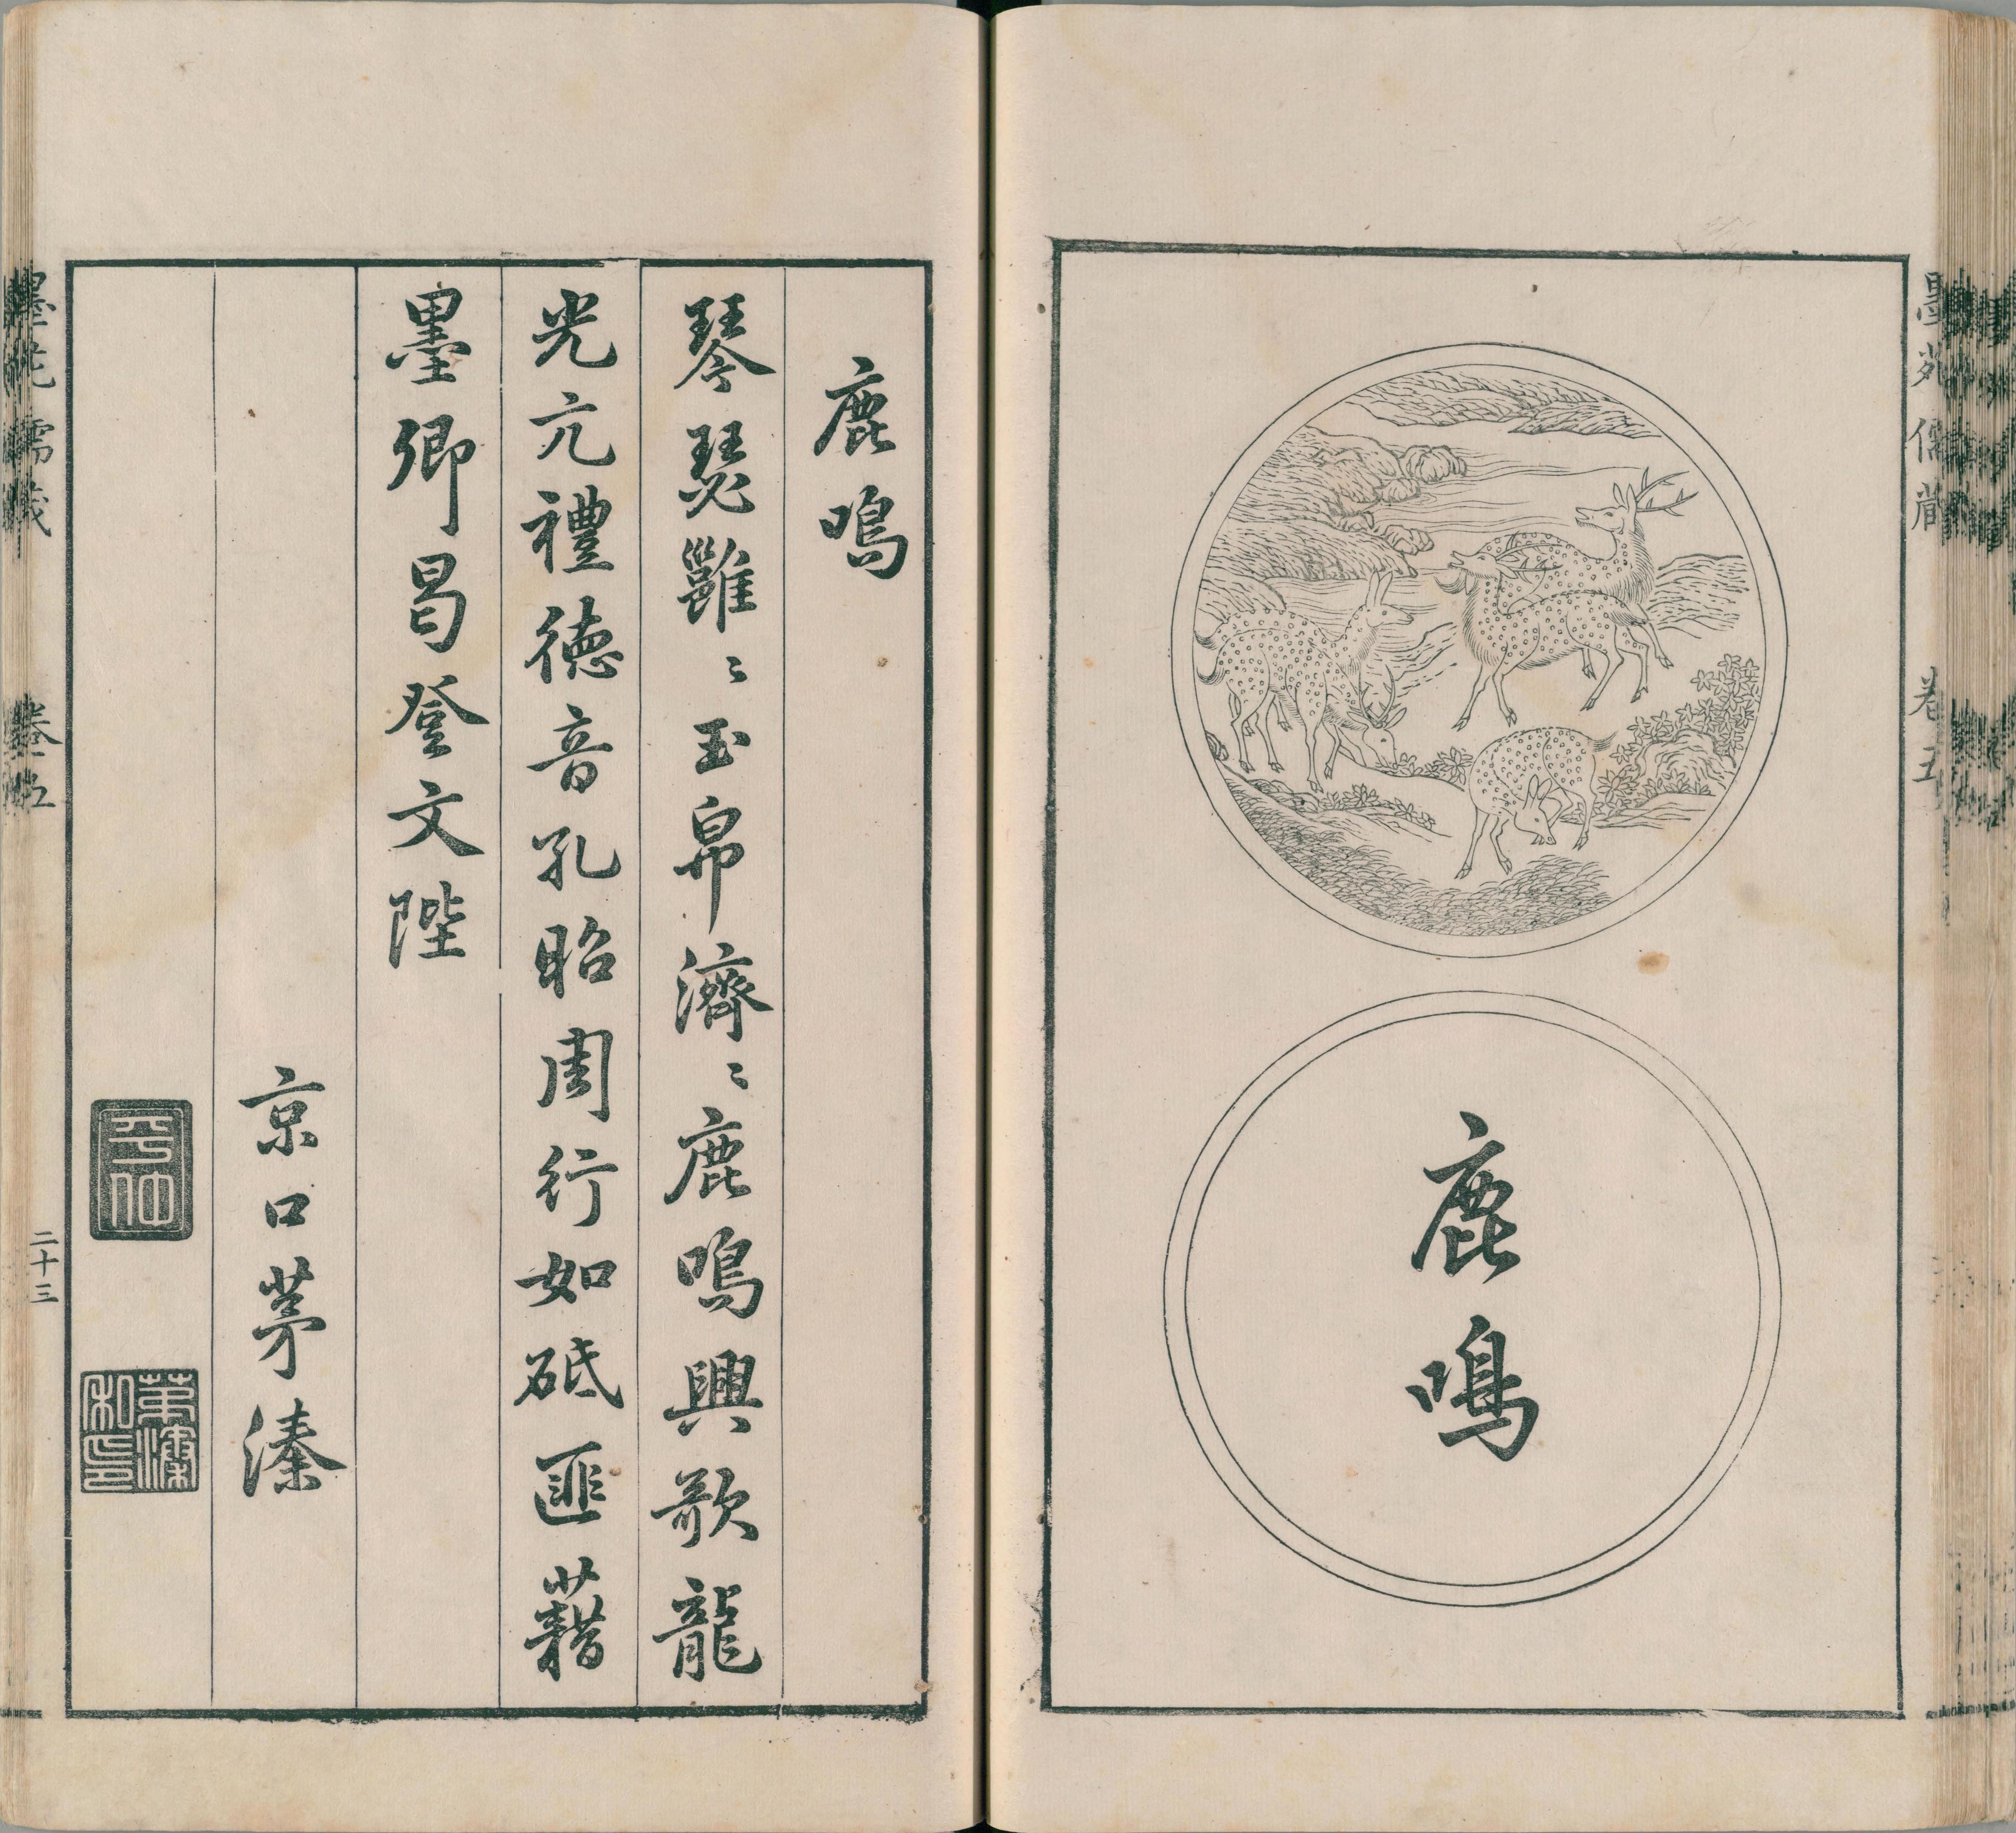 墨苑儒藏 卷五
鹿鳴
鹿鳴
琴瑟雝〻玉帛濟〻鹿鳴興歌龍
光亢禮德音孔昭周行如砥匪藉
墨卿曷登文陛
京口茅溱
茅溱私印
二十三